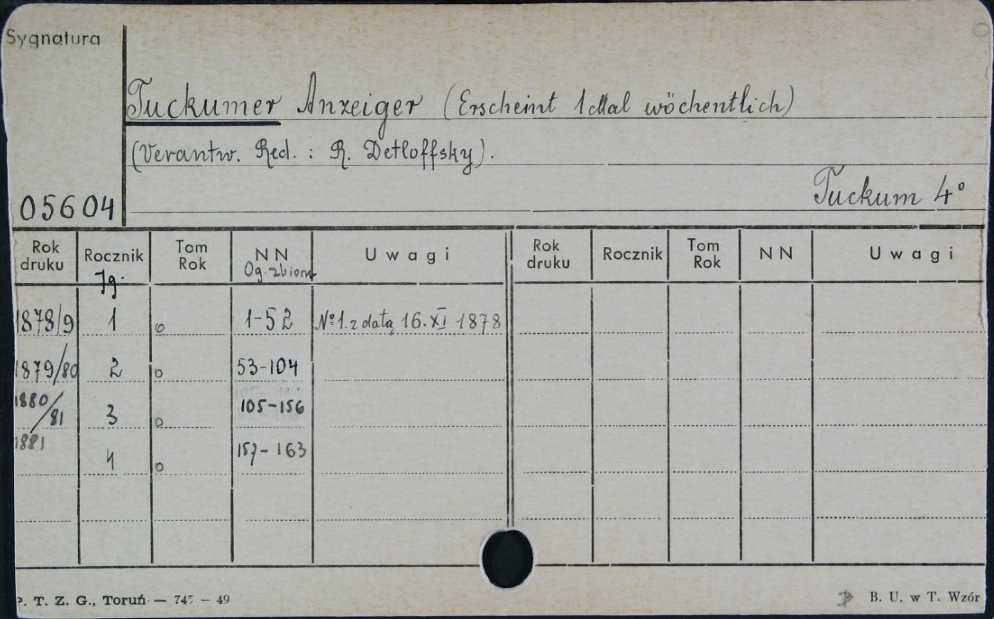 Sygnatura
Tuckumer Anzeiger (Erscheint 1 Mal wöchentlich)
(Verantw. Red. : R. Detloffsky).
05604
Tuckum 4°
Rok druku Rocznik Tom Rok NN Uwagi Rok druku Rocznik Tom Rok NN Uwagi
Jg. Og. zbioru
1878/9 1 0 1-52 № 1. z datą 16. XI 1878
1879/80 2 0 53-104
1880/81 3 0 105-156
1881 4 0 157-163
P. T. Z. G., Toruń — 745 — 49
B. U. w T. Wzór